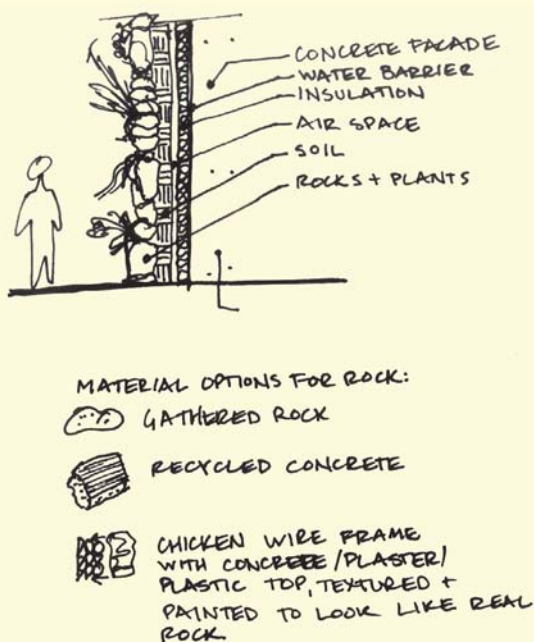 CONCRETE FACADE
WATER BARRIER
INSULATION
AIR SPACE
SOIL
ROCKS + PLANTS
MATERIAL OPTIONS FOR ROCK:
GATHERED ROCK
RECYCLED CONCRETE
CHICKEN WIRE FRAME
WITH CONCREEE/PLASTER/
PLASTIC TOP, TEXTURED +
PAINTED TO LOOK LIKE REAL
ROCK.